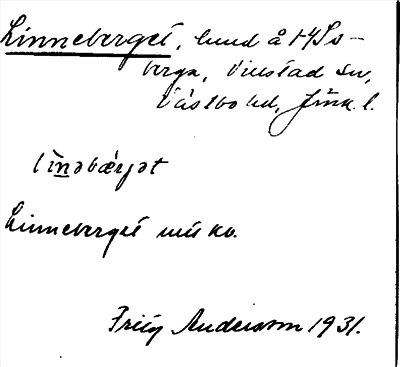 Linneberget, lund å 1⁴Ss-
berga, Villstad sn,
Västbo hd, Jönk. l.
lìnəbærjət
Linneberget
Fritz Andersson 1931.